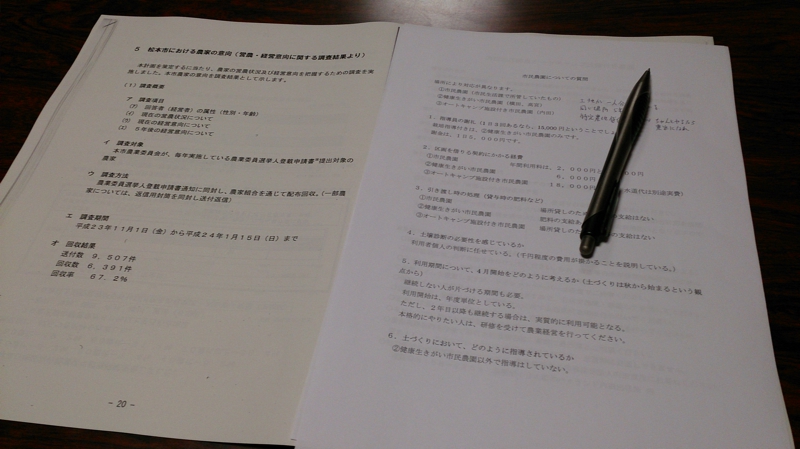 5 松本市における農家の意向(営農・経営意向に関する調査結果より)
本計画を策定するに当たり、農家の営農状況及び経営意向を把握するための調査を実
施しました。本市農家の意向を調査結果として示します。
(1) 調査概要
ア 調査項目
(ｱ) 回答者(経営者)の属性(性別・年齢)
(ｲ) 現在の営農状況について
(ｳ) 現在の経営意向について
(ｴ) 5年後の経営意向について
イ 調査対象
本市農業委員会が、毎年実施している農業委員選挙人登載申請書*提出対象の
農家
ウ 調査方法
農業委員選挙人登載申請書通知に同封し、農家組合を通じて配布回収。(一部農
家については、返信用封筒を同封し送付返信)
エ 調査期間
平成23年11月1日(金)から平成24年1月15日(日)まで
オ 回収結果
送付数 9,507件
回収数 6,391件
回収率 67.2%
- 20 -
市民農園についての質問
場所により対応が異なります。
①市民農園(市民生活課で所管していたもの)
②健康生きがい市民農園
③オートキャンプ施設付き市民農園(内田)
1.指導員の
2.区画を借りる契約にかかる経費
①市民農園 年間利用料は、2,000円
②健康生きがい市民農園 6,000円
③オートキャンプ施設付き市民農園 18,000円
水道代は別途実費)
3.引き渡し時の処理(貸与時の肥料など)
①市民農園 場所貸しのため の支給はない
②健康生きがい市民農園 肥料の支給あ
③オートキャンプ施設付き市民農園 場所貸しのた の支給はない
4.土壌診断の必要性を感じているか
利用者個人の判断に任せている。(千円程度の費用が掛かることを説明している。)
5.利用期間について、4月開始をどのように考えるか(土づくりは秋から始まるという観
点から)
継続しない人が片づける期間も必要。
利用開始は、年度単位としている。
ただし、2年目以降も継続する場合は、実質的に利用可能となる。
本格的にやりたい人は、研修を受けて農業経営を行ってください。
6.土づくりにおいて、どのように指導されているか
②健康生きがい市民農園以外で指導はしていない。